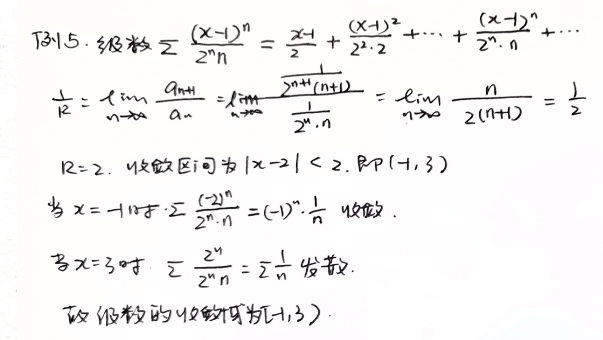 例5. 级数 Σ (x-1)^n / 2^n n = x-1 / 2 + (x-1)^2 / 2^2·2 + ··· + (x-1)^n / 2^n·n + ···
1/R = lim n→∞ a_{n+1} / a_n = lim n→∞ (1 / 2^{n+1}(n+1)) / (1 / 2^n·n) = lim n→∞ n / 2(n+1) = 1/2
R=2. 收敛区间为|x-2|<2.即(-1,3)
当x=-1时·Σ (-2)^n / 2^n·n = (-1)^n·1/n 收敛.
当x=3时 Σ 2^n / 2^n n = Σ 1/n 发散.
故级数的收敛域为[-1,3).